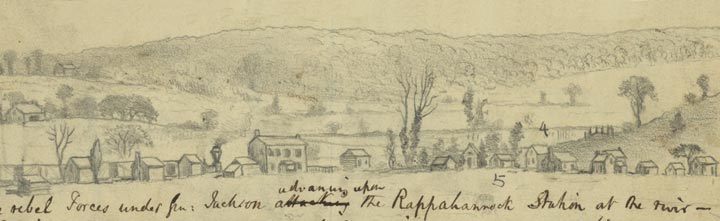 4
5
advancing upon
rebel Forces under Gen: Jackson attacking the Rappahannock Station at the river —